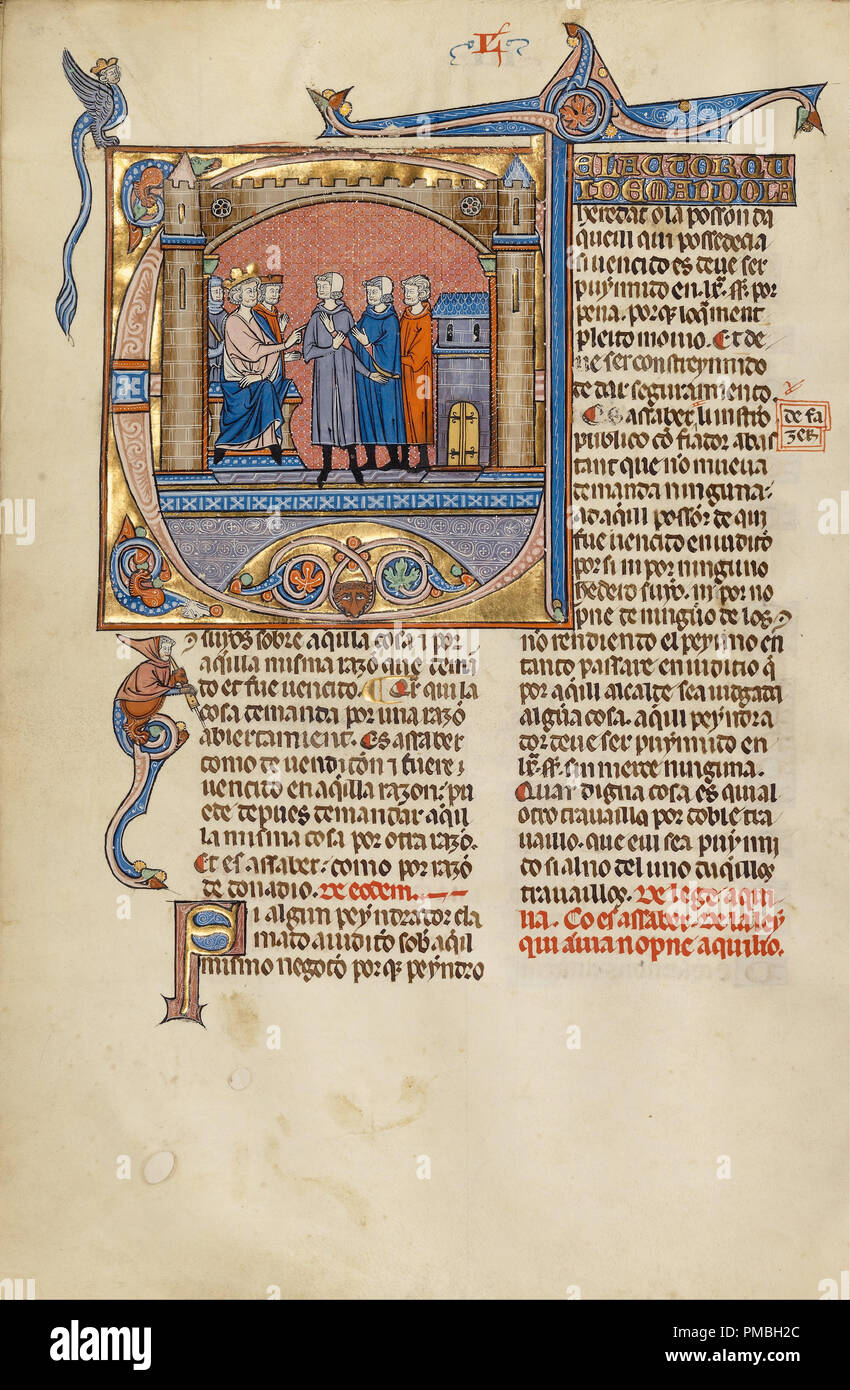 EL ACTOR QU
I DEMANDO LA
heredat o la possion da
quell qui possedecia
si uencito es deue ser
puynnido en .lx. ss. por
pena. porq̃ loq̃ment
pleito mouio. Et de
ue ser constreynnido
de dar seguramiento.
Es assaber .
publico cõ fiador abas
de fa
zer
tant que no mueua
demanda ninguna.
ad aq̃ill possor de qui
fue uencito en iuditõ
por si ni por ninguno
hedero suyo. ni por no
pñe de ningũo de los
suyos sobre aquilla cosa ⁊ por
aquilla misma razõ que demã
do et fue uencito. Et qui la
cosa demanda por una razõ
abiertamient. Es assaber
como de uendicõn ⁊ fuere
uencito en aq̃lla razon: pu
ede depues demandar aqui
la misma cosa por otra razõ.
Et es assaber: como por razõ
de donadio. De eodem.
Si algun peyndrador cla
mado a iuditõ sob aq̃il
mismo negotõ porq̃ peyndro
no rendiendo el peynno en
tanto passare en iuditio q̃
por aq̃ill alcalde sea iudgada
algũa cosa. aq̃ill peyndra
dor deue ser puynnido en
lx. ss. sin merce ninguna.
Quar digna cosa es qui al
otro trauaillo por doble tra
uaillo. que eill sea puynni
do si al no del uno daq̃illos
trauaillos. De lege aqui
lia. Co es assaber. De la ley
qui auia nopñe aquilio.
alamy
Image ID: PMBH2C
www.alamy.com